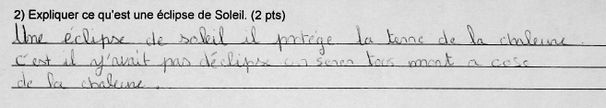 2) Expliquer ce qu'est une éclipse de Soleil. (2 pts)
Une éclipse de soleil il protège la terre de la chaleure.
c'est il y'avait pas déclipse on seren tous mort a cose
de la chaleure.